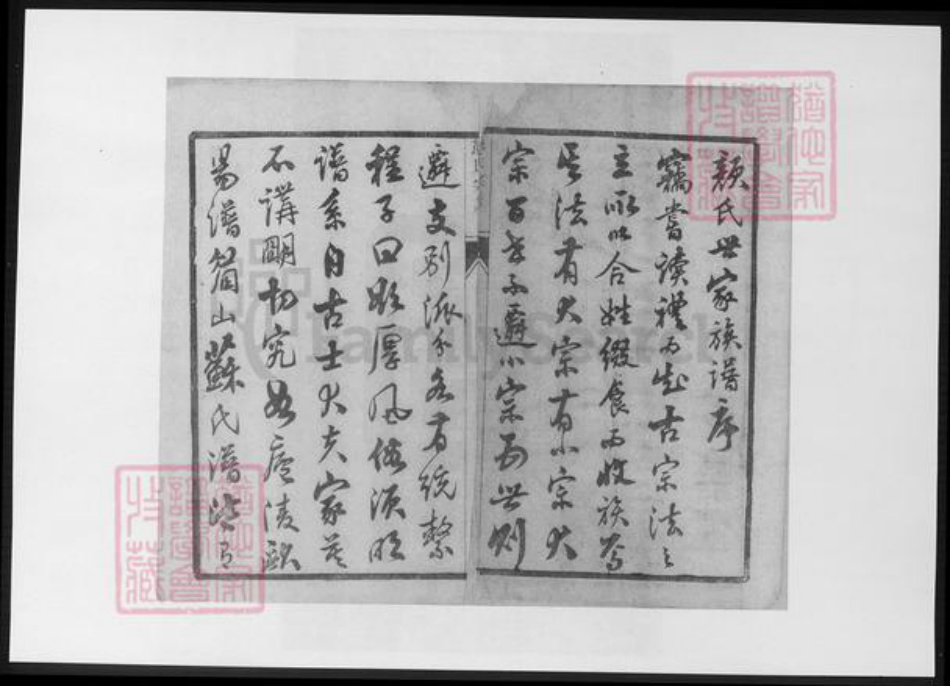 顏氏世家族譜序
竊嘗讀禮而知古宗法之
立所以合姓綴食而收族焉
其法有大宗有小宗大
宗百世不遷小宗五世則
遷支別派分各有統繫
程子曰欲厚風俗須明
譜系自古士大夫家莫
不講闡切究如廬陵歐
陽譜眉山蘇氏譜皆可
FamilySearch
譜學會
特藏